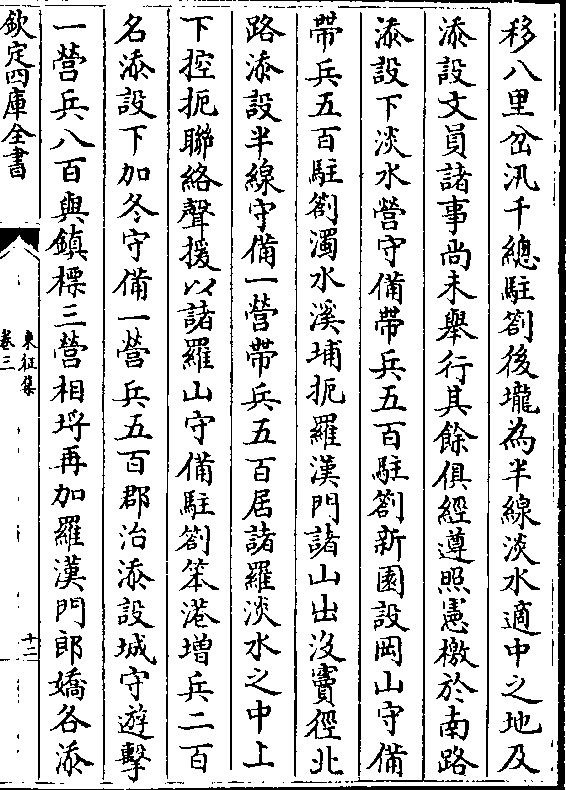 移八里岔汛千總駐劄後壠為半線淡水適中之地及
添設文員諸事尚未舉行其餘俱經遵照憲檄於南路
添設下淡水營守備帶兵五百駐劄新園設岡山守備
帶兵五百駐劄濁水溪埔扼羅漢門諸山出沒竇徑北
路添設半線守備一營帶兵五百居諸羅淡水之中上
下控扼聯絡聲援以諸羅山守備駐劄笨港增兵二百
名添設下加冬守備一營兵五百郡治添設城守遊擊
一營兵八百與鎮標三營相埒再加羅漢門郎嬌各添
欽定四庫全書
東征集
卷三
十二